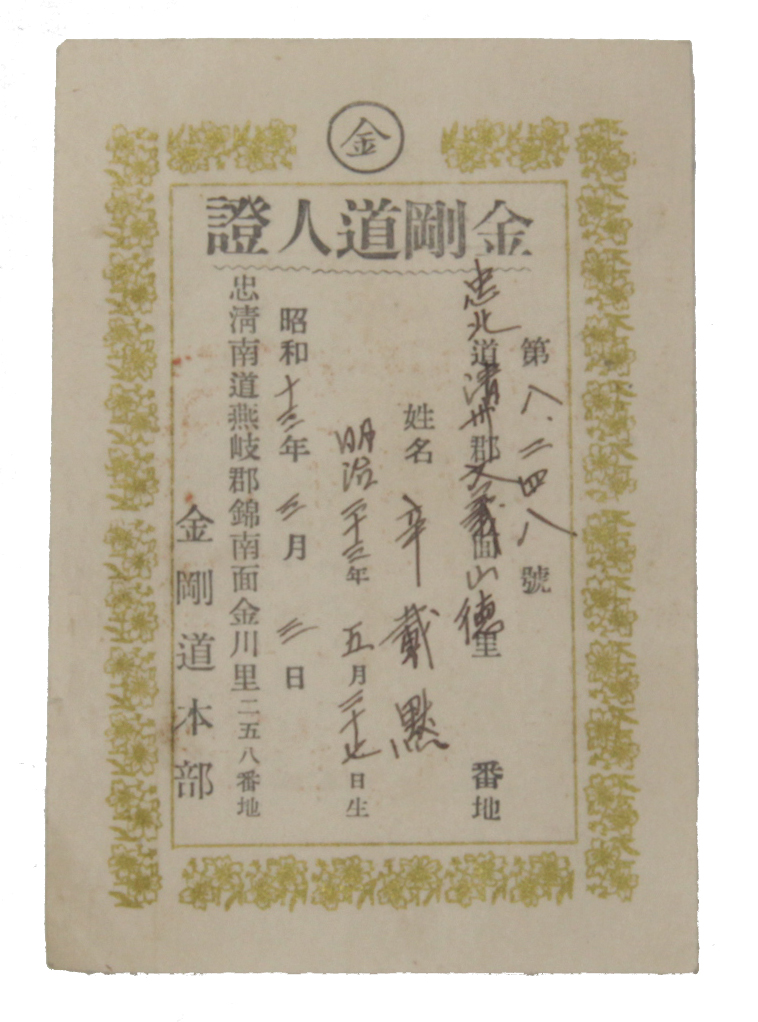 金
金剛道人證
第八、二四八號
忠北道淸州郡文義面山德里 番地
姓名 辛載默
明治二十三年五月二十七日生
昭和十三年三月三日
忠淸南道燕岐郡錦南面金川里二五八番地
金剛道本部